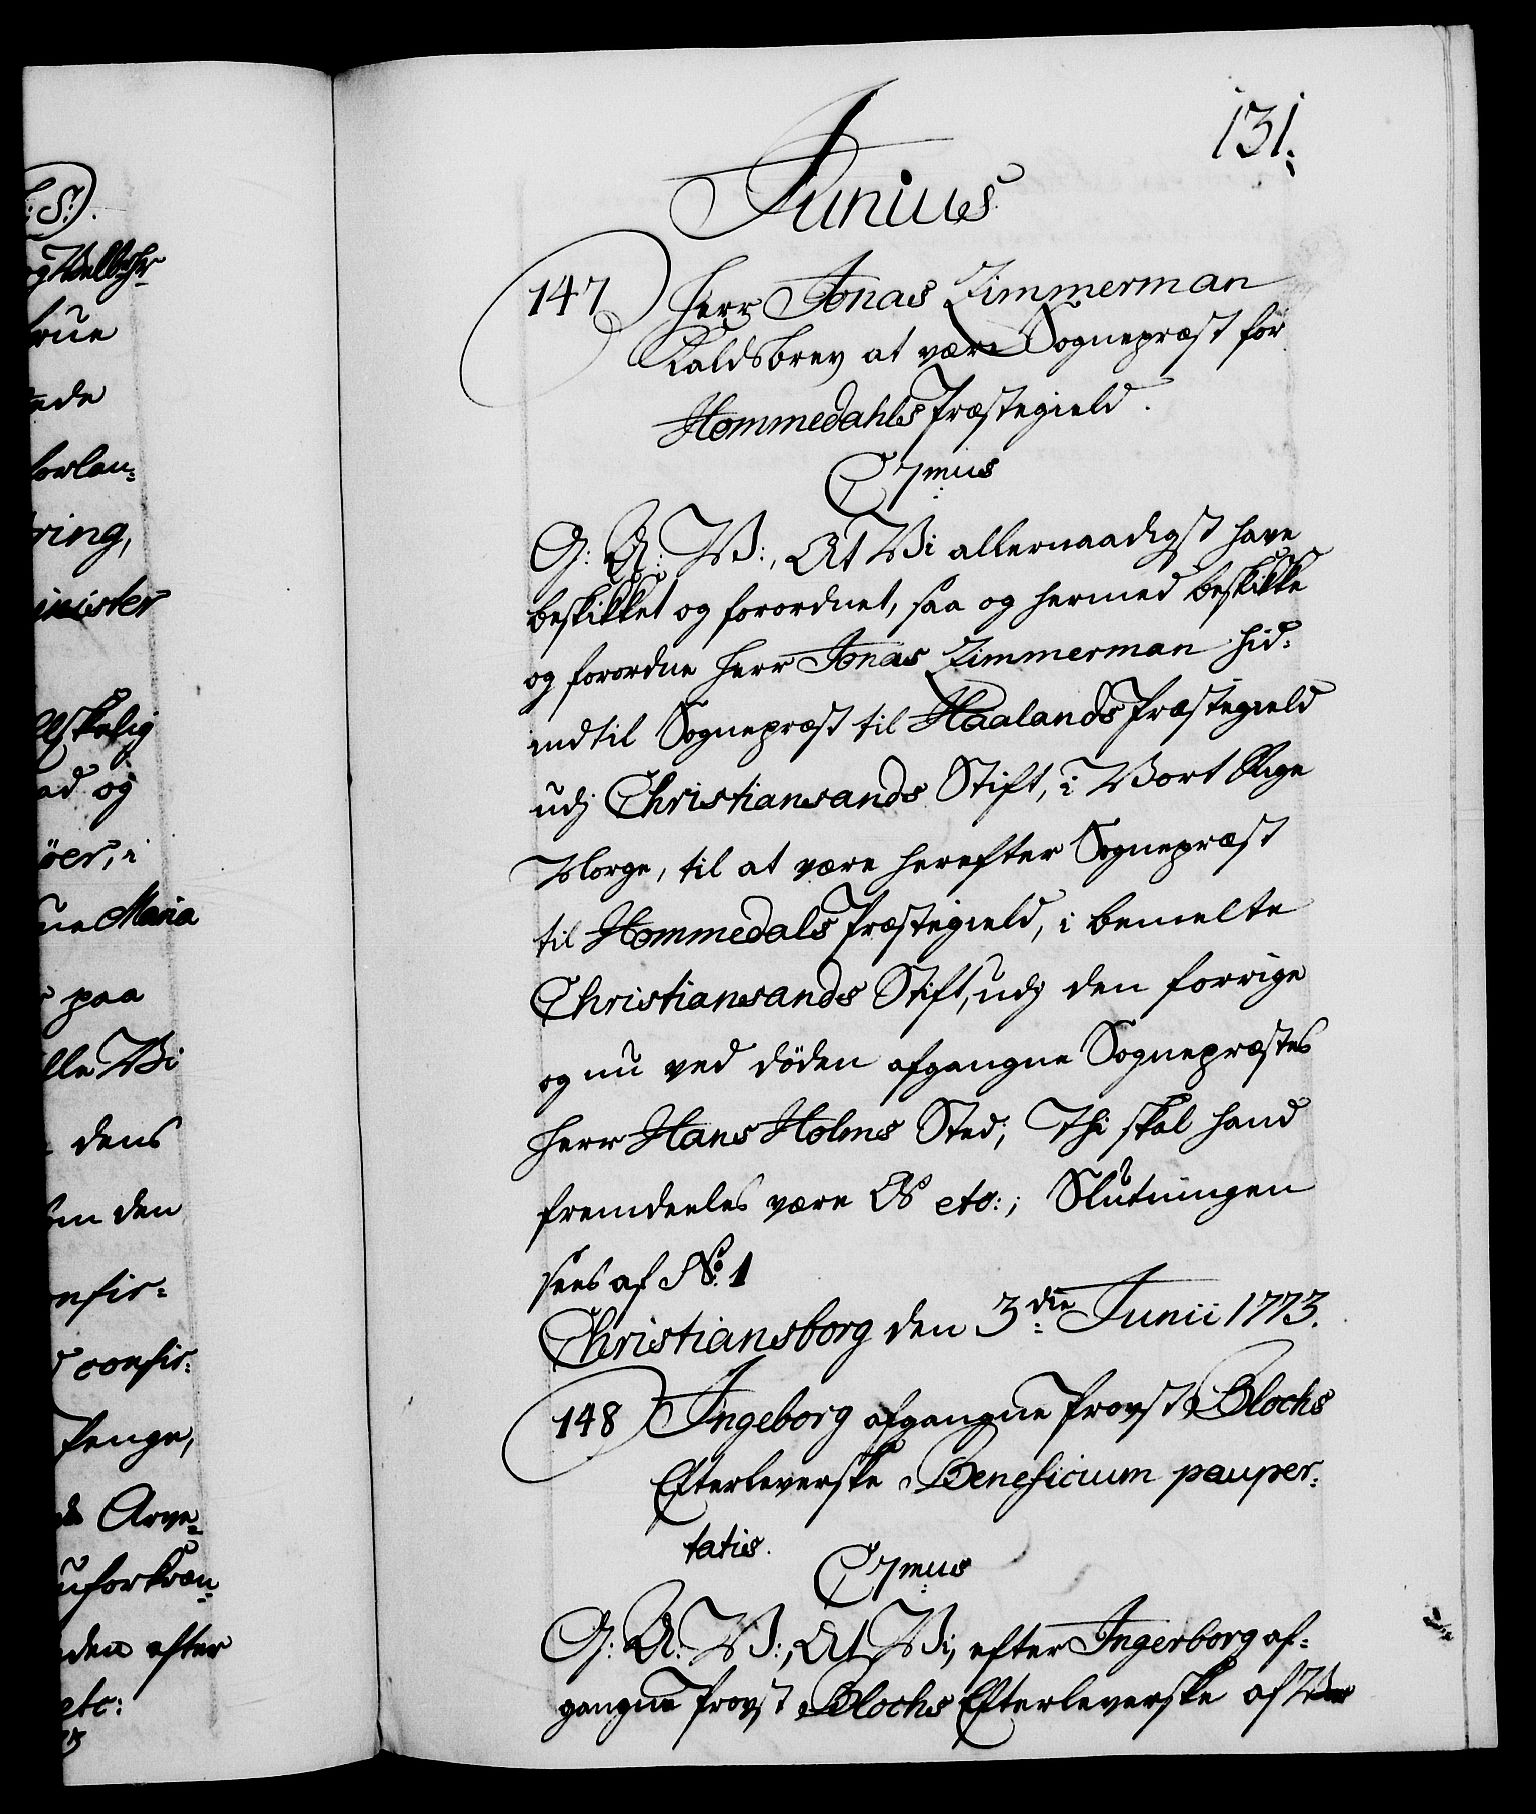 131.
Junius
147 Herr Jonas Zimmerman
Kaldsbrev at være Sognepræst for
Hommedahls Præstegield.
C7mus
G: A: V:, At Vi allernaadigst have
beskikket og forordnet, saa og hermed beskikke
og forordne Herr Jonas Zimmerman hid-
indtil Sognepræst til Haalands Præstegield
udj Christiansands Stift, i Vort Rige
Norge, til at være herefter Sognepræst
til Hommedals Præstegield, i bemelte
Christiansands Stift, udj den forrige
og nu ved döden afgangne Sognepræstes
Herr Hans Holms Sted; Thi skal hand
fremdeeles være Os etc:; Slutningen
sees af No. 1
Christiansborg den 3die Junii 1773.
148 Ingeborg afgangne Provst Blochs
Efterleverske Beneficium pauper-
tatis.
C7mus
G: A: V:, At Vi, efter Ingerborg af-
gangne Provst Blochs Efterleverske af Vor
:S:).
og Velbhr
frue
forlan-
ring,
inister
elskelig
ad og
öer, i
ne Maria
paa
lle Vi
dens
om den
nfir-
d confir-
Penge,
Arve-
uforkræn-
den efter
etc: